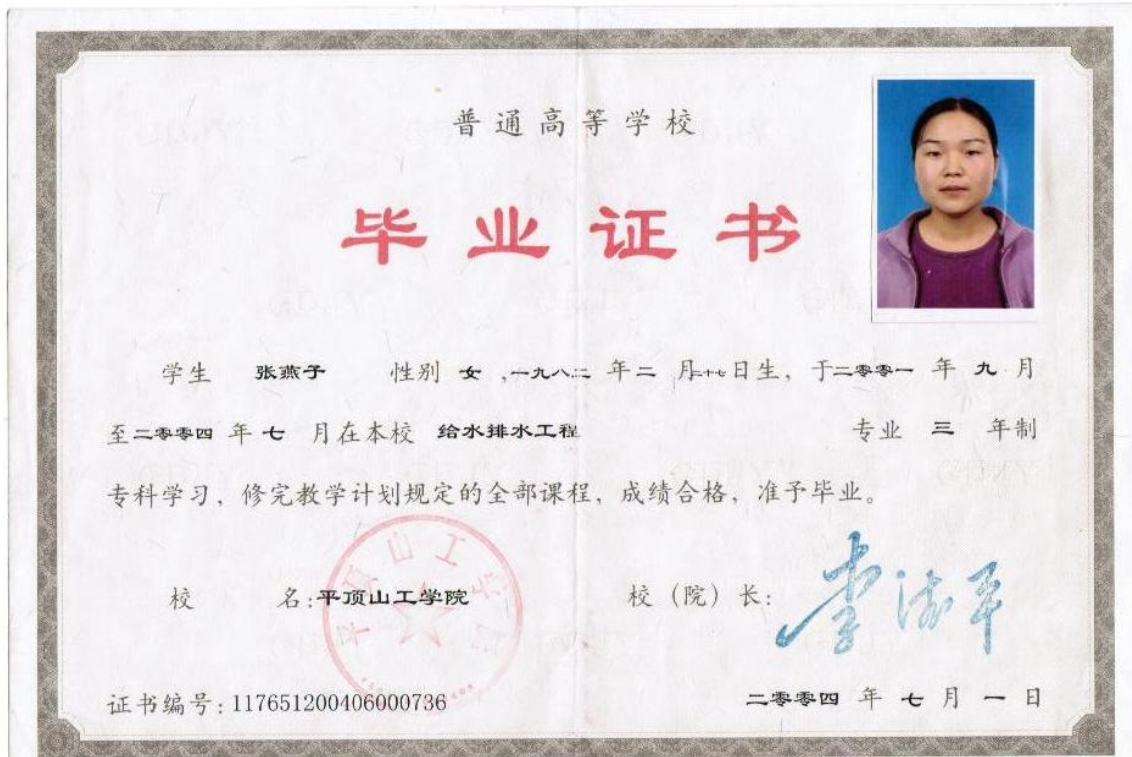 普通高等学校
毕业证书
学生 张燕子 性别 女 ,一九八二 年 二 月 二十七 日生, 于 二零零一 年 九 月
至 二零零四 年 七 月在本校 给水排水工程 专业 三 年制
专科学习, 修完教学计划规定的全部课程, 成绩合格, 准予毕业。
校 名: 平顶山工学院 校 (院) 长:
平顶山工学院
证书编号: 117651200406000736 二零零四 年 七 月 一 日